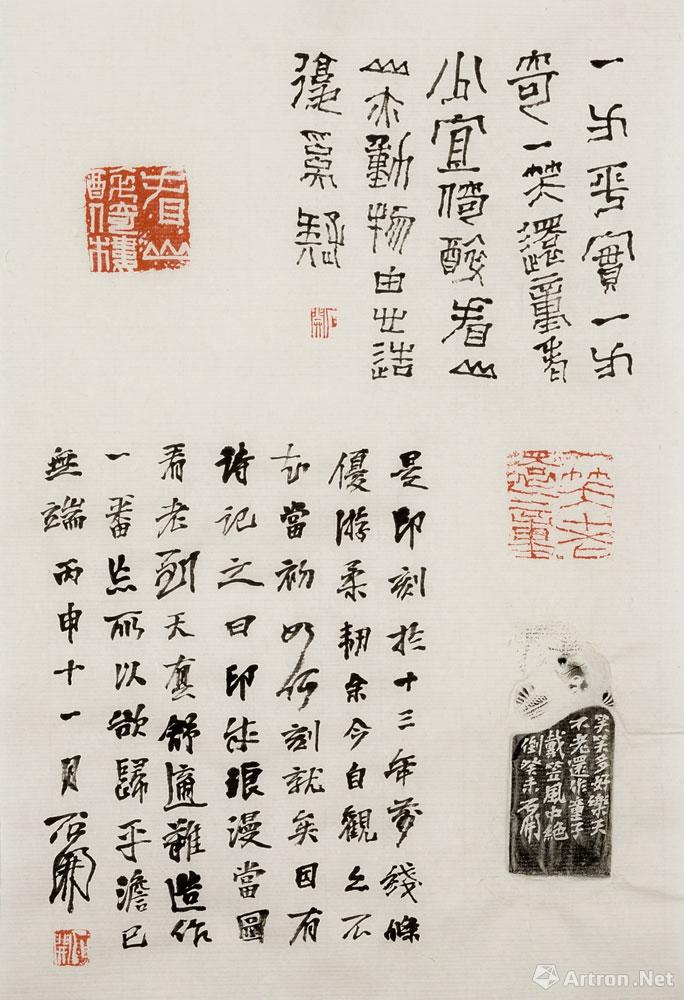 一 平實一
奇一笑還童看
宜 看山
山亦動物由此
疑
石開
看山
樓
一笑
還童
笑笑多好樂天
不老還作童子
戴笠風中絕
倒癸未石開
是印刻於十三年前綫條
優游柔韌余今自觀之不
知當初如何刻就矣因有
詩記之曰印味浪漫當圖
看老到天真舒適難造作
一番忘所以欲歸平澹已
無端丙申十一月石開
石開
Artron.Net